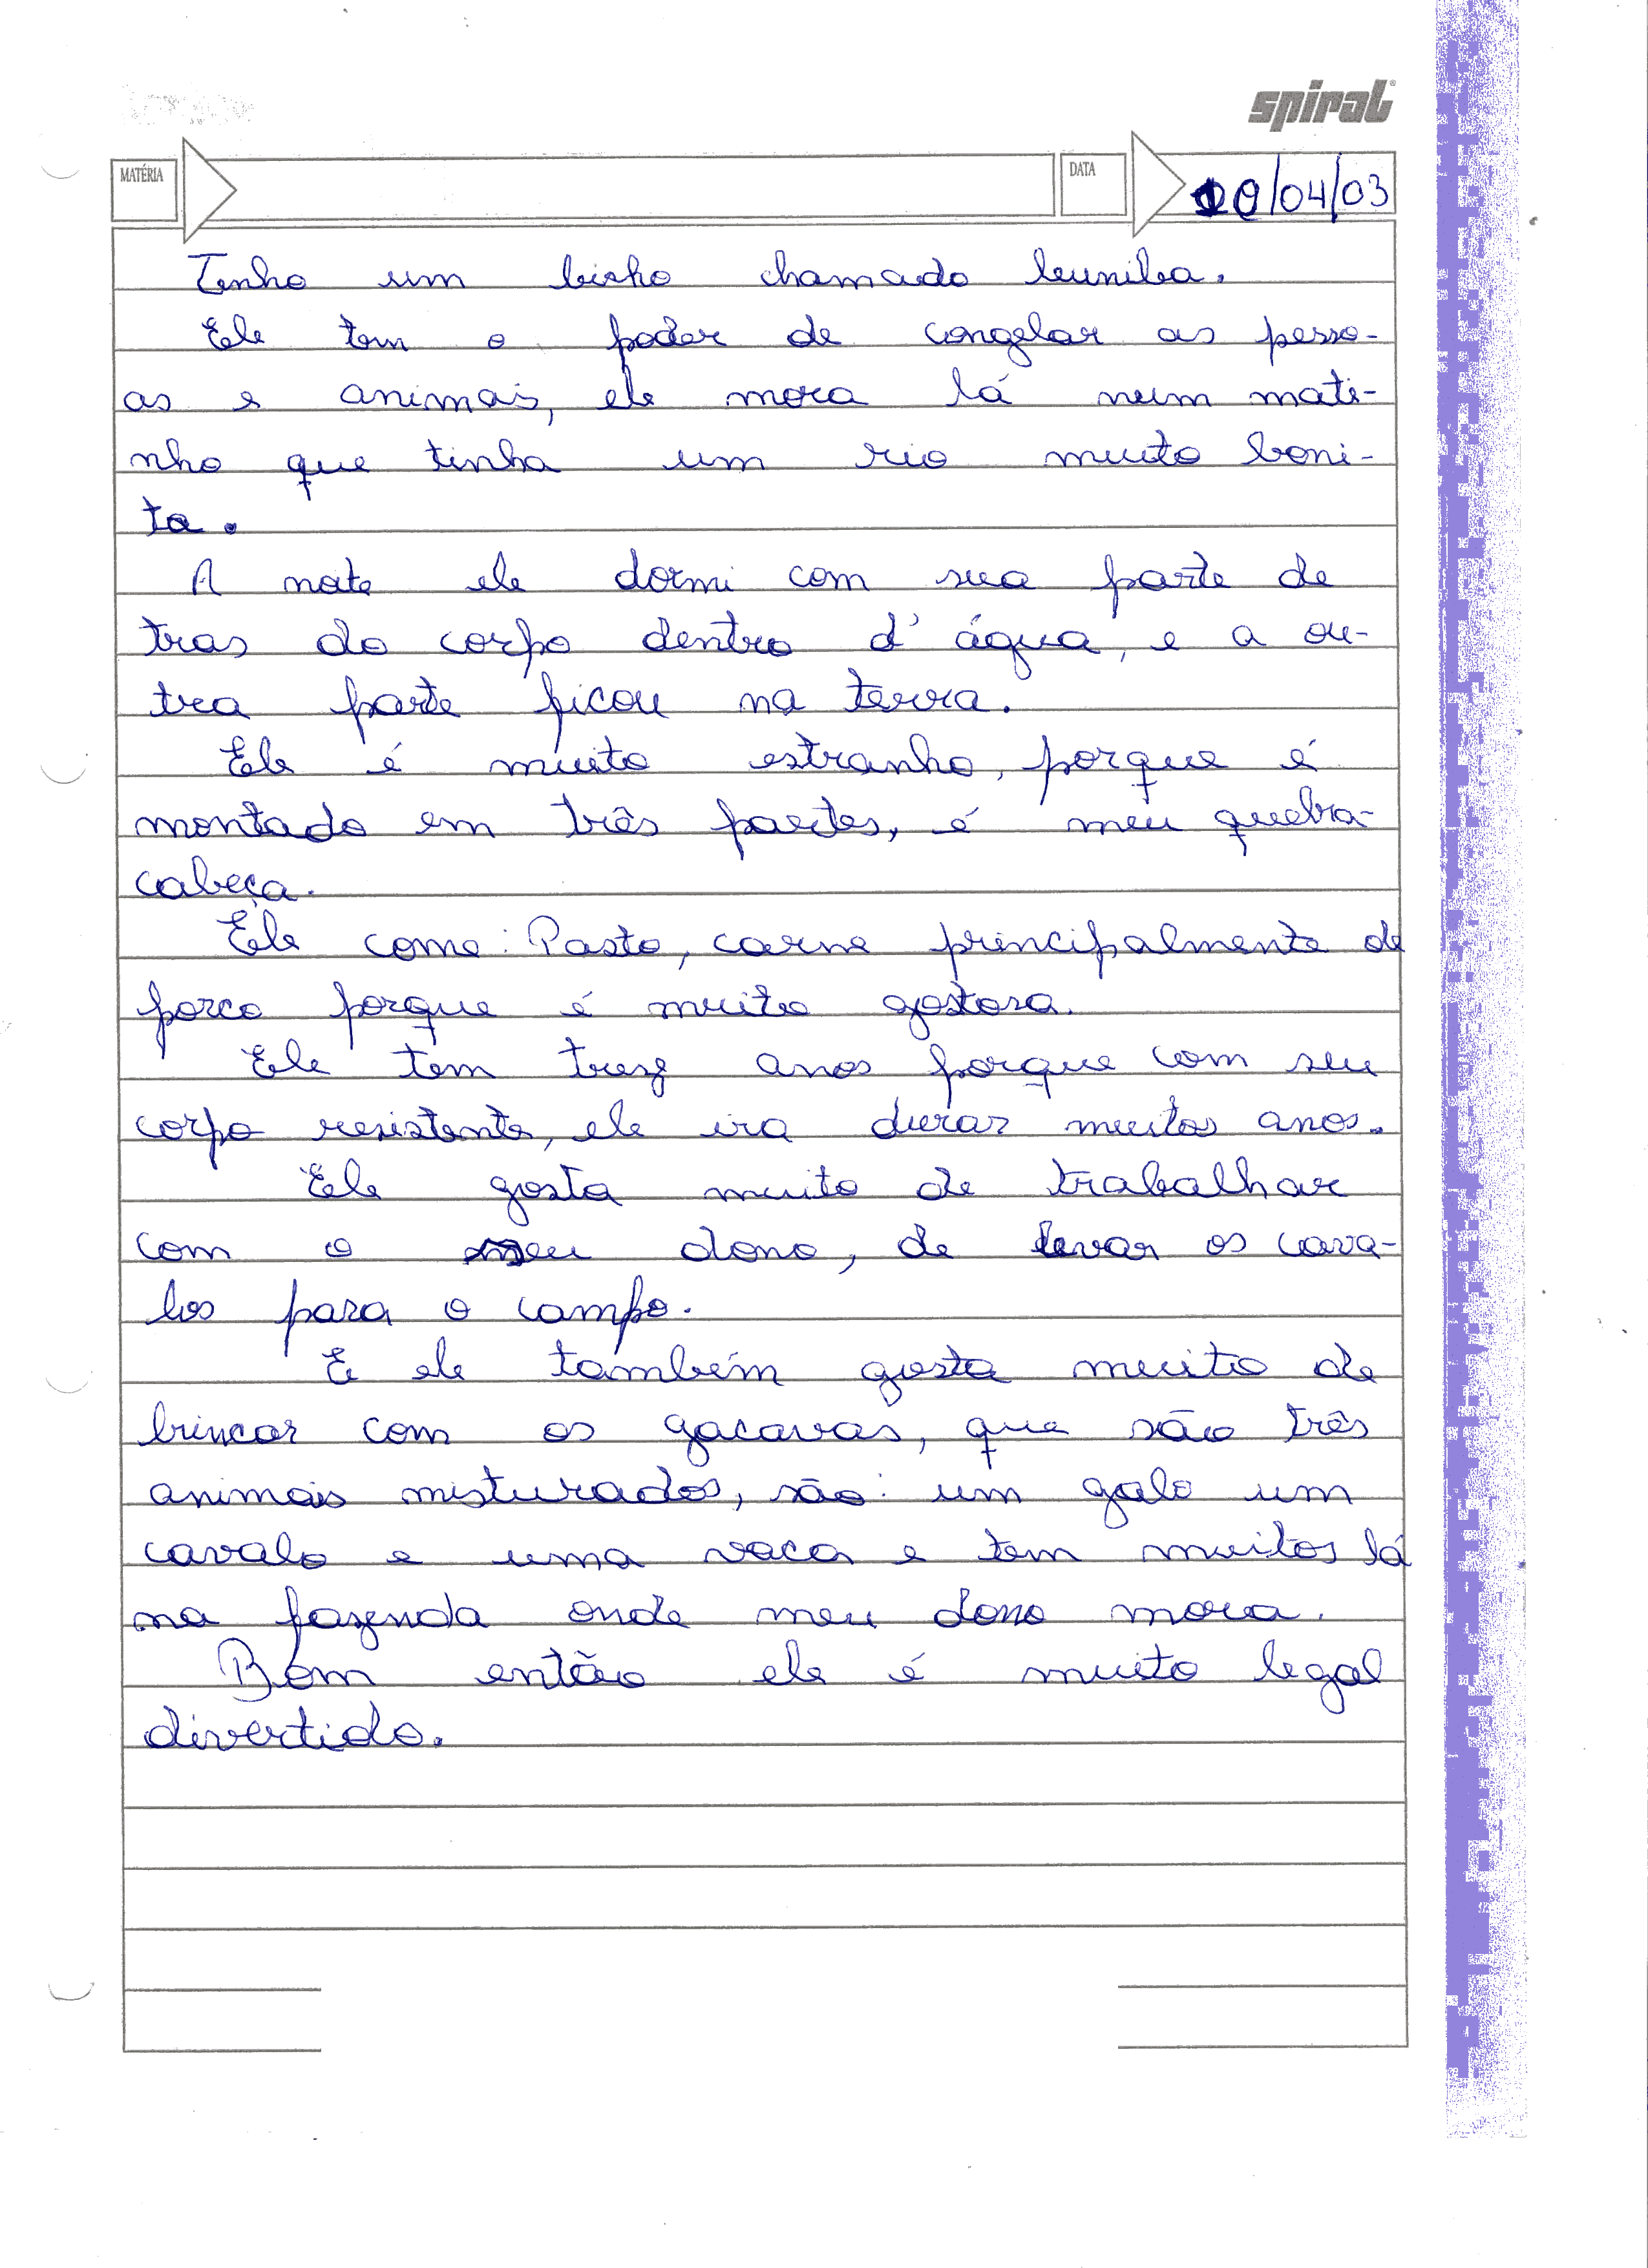 spiral
MATÉRIA
DATA
10/04/03
Tenho um bicho chamado leuniba.
Ele tem o poder de congelar as pesso-
as e animais, ele mora lá num mati-
nho que tinha um rio muito boni-
to.
A note ele dormi com sua parte de
tras do corpo dentro d'água, e a ou-
tra parte ficou na terra.
Ele é muito estranho, porque é
montado em três partes, é meu quebra-
cabeça.
Ele come: Pasto, carne principalmente de
porco porque é muito gostosa.
Ele tem trez anos porque com seu
corpo resistente, ele ira durar muitos anos.
Ele gosta muito de trabalhar
com o meu dono, de levar os cava-
los para o campo.
E ele também gosta muito de
brincar com os gacavas, que são três
animais misturados, são: um galo um
cavalo e uma vaca e tem muitos lá
na fazenda onde meu dono mora.
Bom então ele é muito legal
divertido.